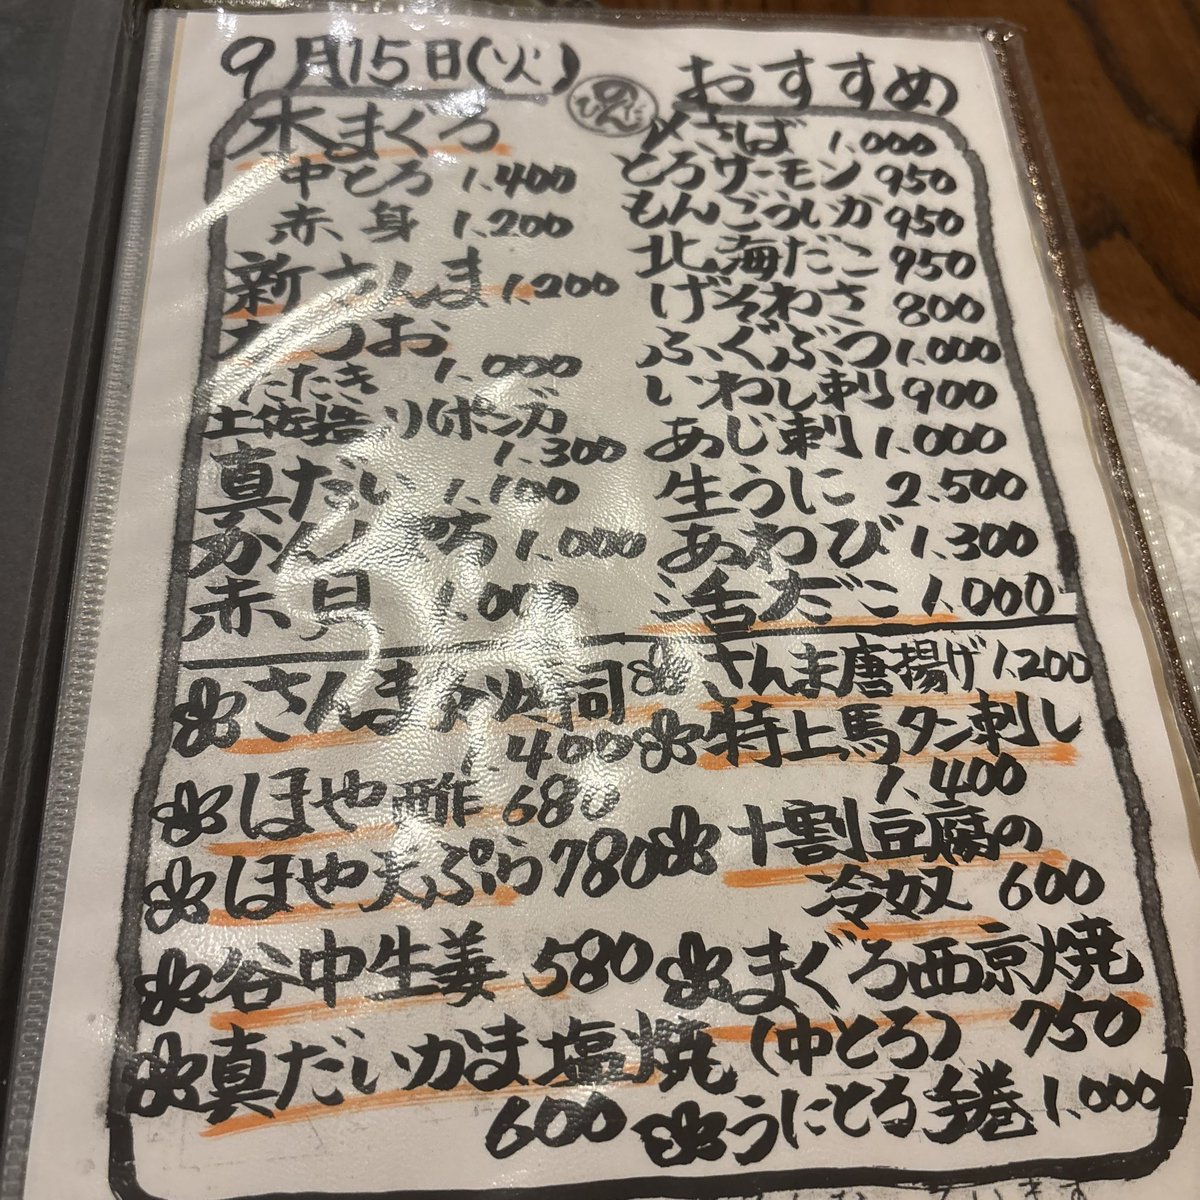 9月15日(火)
おすすめ
本まぐろ
中とろ 1.400
赤身 1.200
新さんま 1.200
かつお
たたき 1.000
土佐造り(ポン刀
1.300
真だい 1.100
かんぱち 1.000
赤貝 1.000
〆さば 1.000
とろサーモン 950
もんごういか 950
北海だこ 950
げそわさ 800
ふぐぶつ 1.000
いわし刺 900
あじ刺 1.000
生うに 2.500
あわび 1.300
活だこ 1.000
さんま
1.400
ほや酢 680
ほや天ぷら 780
谷中生姜 580
真だいかま塩焼
600
さんま唐揚げ 1.200
特上馬タン刺し
1.400
十割豆腐の
冷奴 600
まぐろ西京焼
(中とろ) 750
うにとろ手巻 1.000